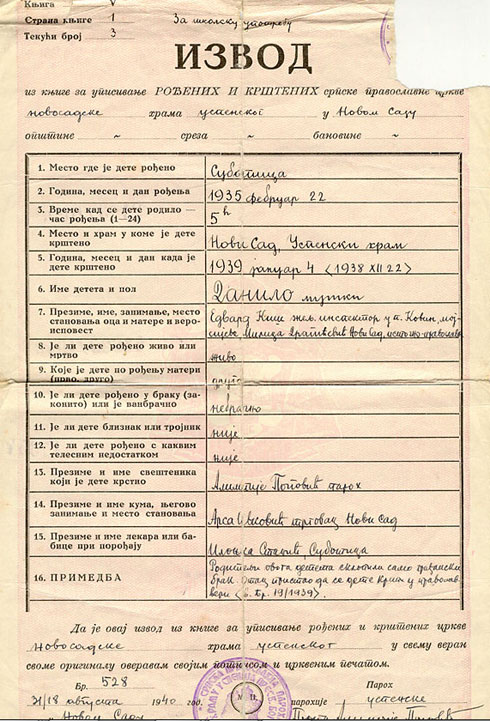 Књига V
Страна књиге 1 За школску употребу
Текући број 3
ИЗВОД
из књиге за уписивање РОЂЕНИХ И КРШТЕНИХ српске православне цркве
новосадске храма успенског у Новом Саду
општине ~ среза ~ бановине ~
1. Место где је дете рођено Суботица
2. Година, месец и дан рођења 1935 фебруар 22
3. Време кад се дете родило —
час рођења (1—24) 5h
4. Место и храм у коме је дете
крштено Нови Сад, Успенски храм
5. Година, месец и дан када је
дете крштено 1939 јануар 4 (1938 XII 22)
6. Име детета и пол Данило мушки
7. Презиме, име, занимање, место
становања оца и матере и веро-
исповест Едвард Киш жељ. инспектор у п. Ковин, мој-
сијеве, Милица Драгићевић Нови Сад,
8. Је ли дете рођено живо или
мртво живо
9. Које је дете по рођењу матери
(прво, друго) друго
10. Је ли дете рођено у браку (за-
конито) или је ванбрачно
11. Је ли дете близнак или тројник није
12. Је ли дете рођено с каквим
телесним недостатком није
13. Презиме и име свештеника
који је дете крстио Алимпије Поповић парох
14. Презиме и име кума, његово
занимање и место становања Арса трговац Нови Сад
15. Презиме и име лекара или ба-
бице при порођају Суботица
16. ПРИМЕДБА Родитељи овога детета склопили само грађански
брак. Отац пристао да се дете крсти у православ-
вери 19/1939).
Да је овај извод из књиге за уписивање рођених и крштених цркве
новосадске храма успенског у свему веран
своме оригиналу оверавам својим потписом и црквеним печатом.
Бр. 528 Парох
31/18 августа 1940 год. парохије успенске
у Новом Саду